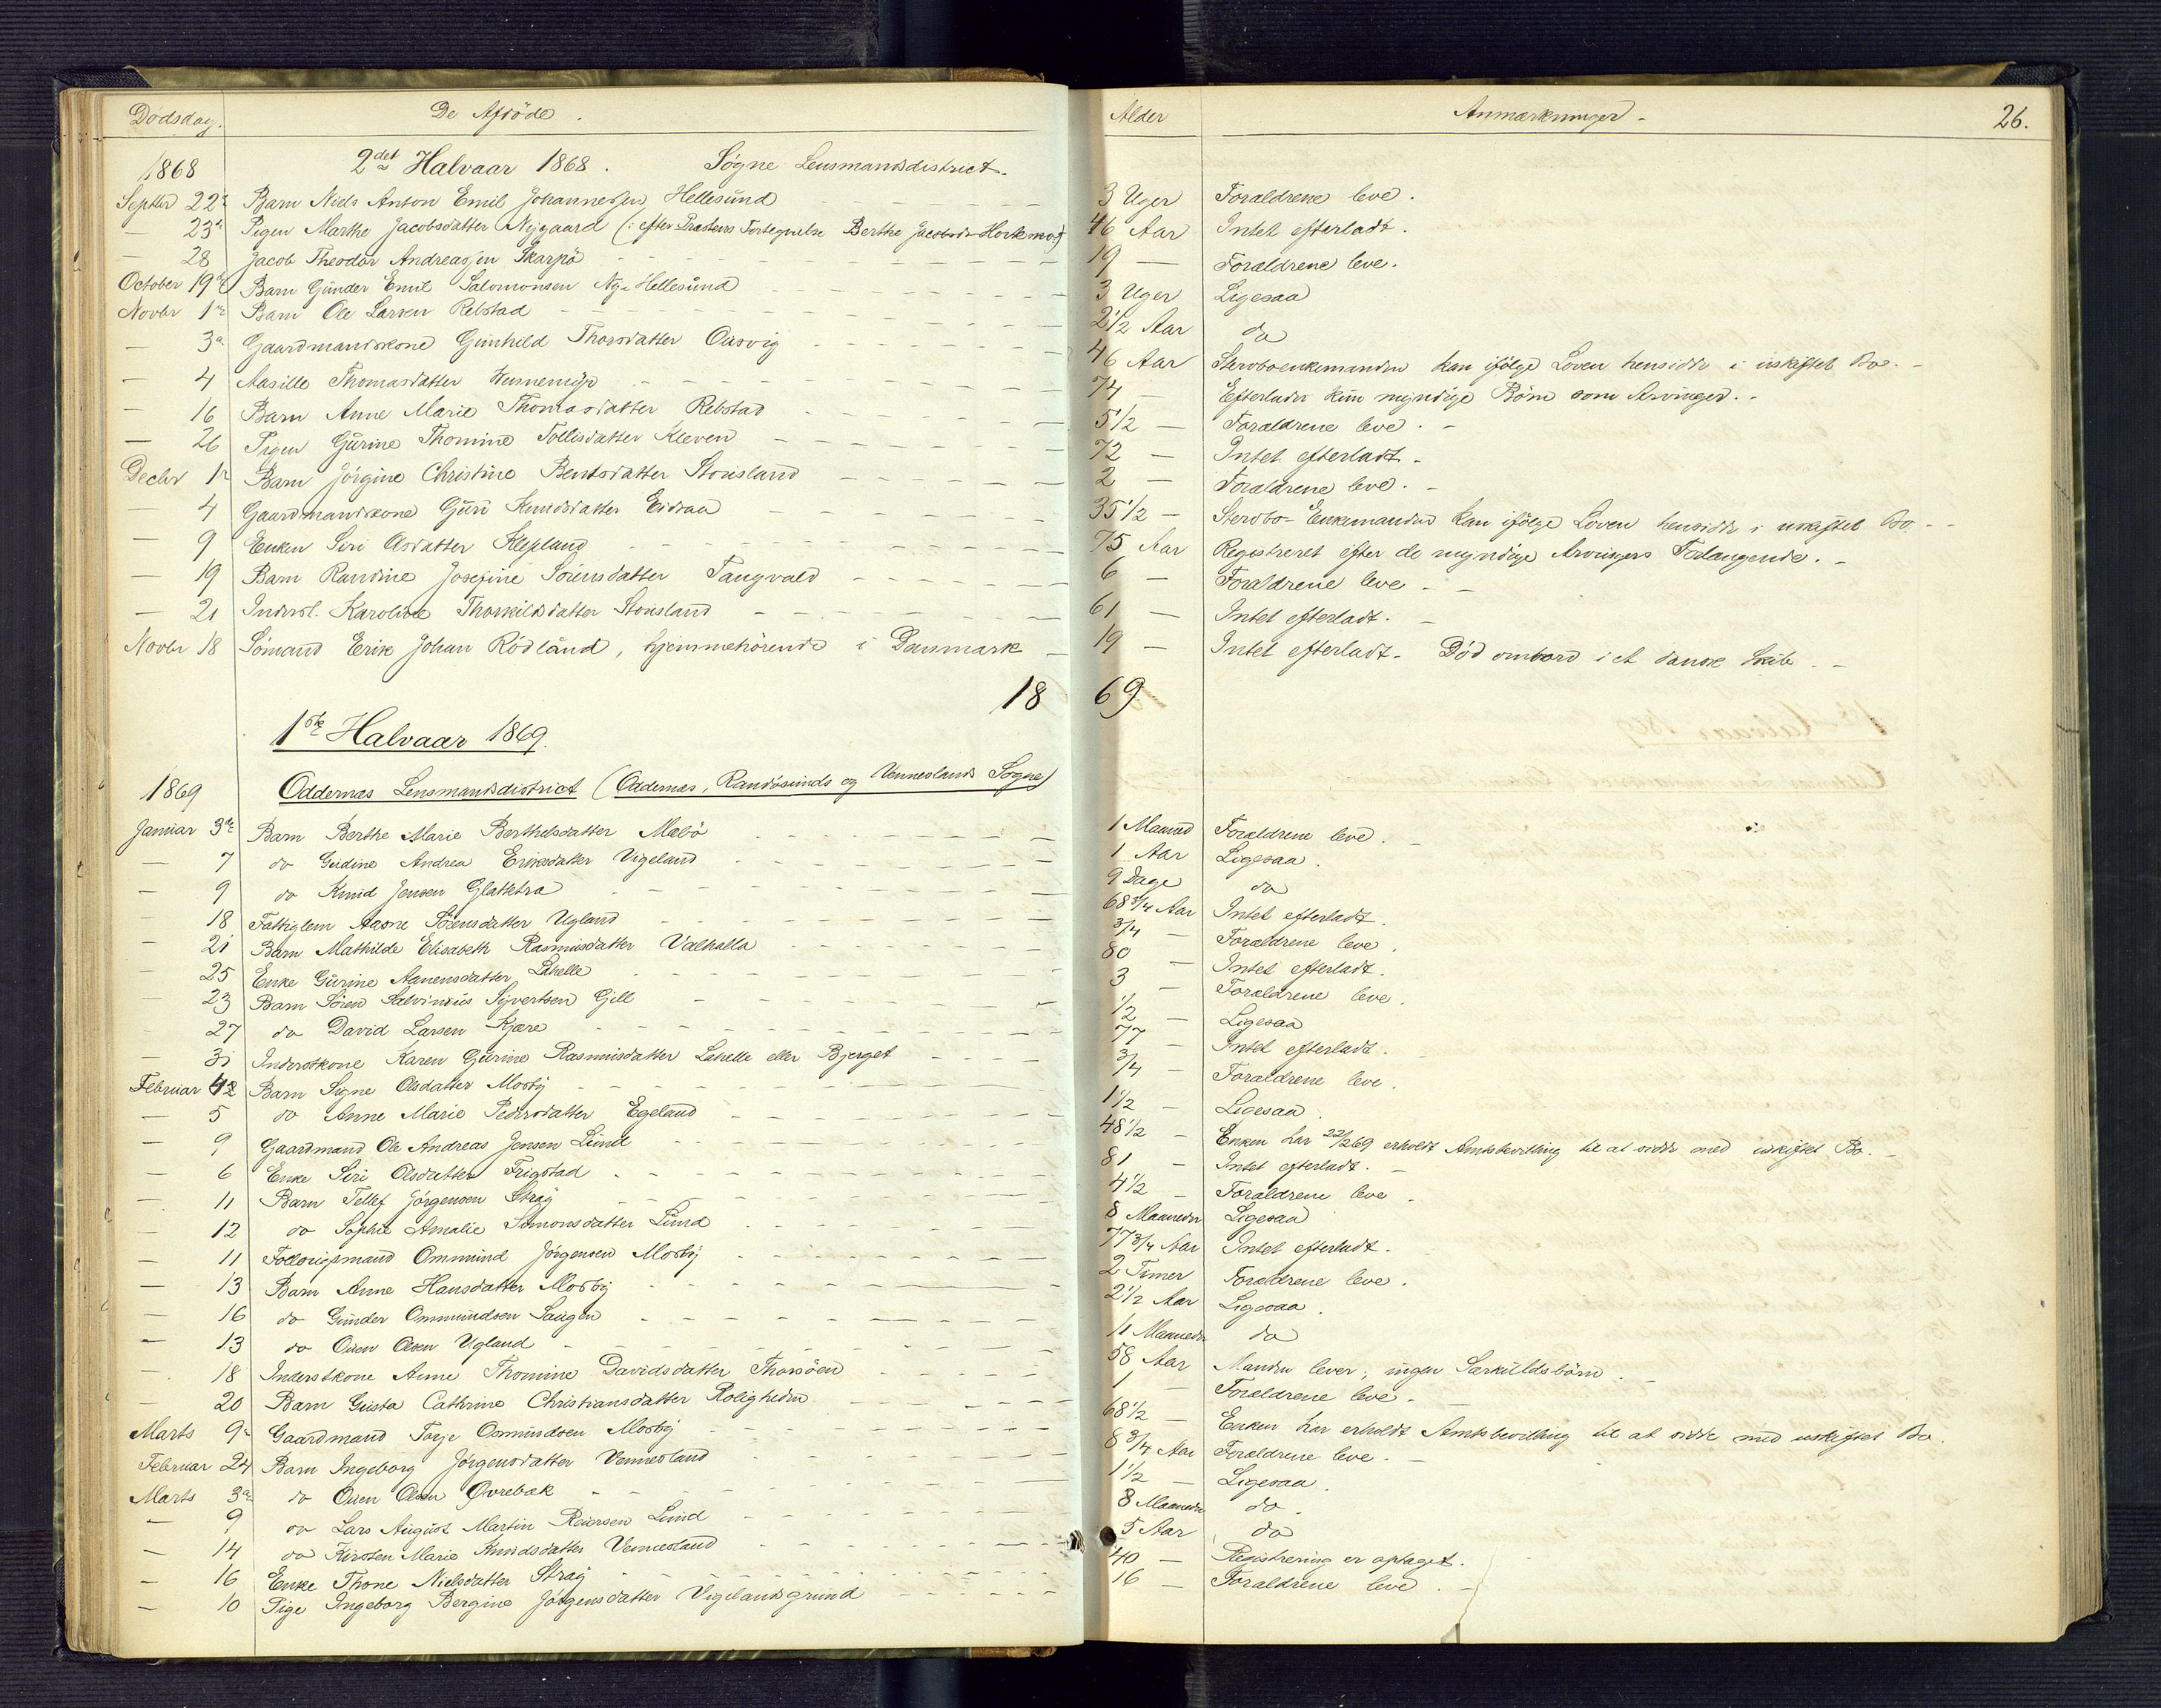 Dødsdag. De Afdöde. Alder Anmærkninger - 26.
1868 2det Halvaar 1868. Søgne Lensmandsdistrict.
Septbr 22de Barn Niels Anton Emil Johannessen Hellesund 3 Uger Forældrene leve.
— 23de Pigen Marthe Jacobsdatter Nygaard (: efter Præstens Fortegnelse Berthe Jacobsdr Hortemo:) 46 Aar Intet efterladt.
— 28 Jacob Theodor Andreassen Skarpö 19 — Forældrene leve.
October 19de Barn Gunder Emil Salomonsen Ny-Hellesund 3 Uger Ligesaa
Novbr 1ste Barn Ole Larsen Rebstad 2 1/2 Aar do
— 3de Gaardmandskone Gunhild Thorsdatter Ousvig 46 Aar Stervboenkemanden kan ifölge Loven hensidde i uskiftet Bo. -
— 4 Aasille Thomasdatter 74 — Efterlader kun myndige Börn som Arvinger. -
— 16 Barn Anne Marie Thomasdatter Rebstad 5 1/2 — Forældrene leve. -
— 26 Pigen Gurine Thomine Tollisdatter Kleven 72 — Intet efterladt.
Decbr 1ste Barn Jörgine Christine Bentsdatter Stousland 2 — Forældrene leve. -
— 4 Gaardmandskone Guri Knudsdatter Eidsaa 35 1/2 — Stervbo-Enkemanden kan ifölge Loven hensidde i uskiftet Bo. -
— 9 Enken Siri Osdatter Klepland 75 Aar Registreret efter de myndige Arvingers Forlangende. -
— 19 Barn Randine Josefine Sörensdatter Tangvald 6 — Forældrene leve. -
— 21 Inderst. Karoline Thorkildsdatter Stousland 61 — Intet efterladt. -
Novbr 18 Sömand Erik Johan Rödland, hjemmehörende i Danmark 19 — Intet efterladt. Död ombord i et dansk Skib. -
18 69
1ste Halvaar 1869.
1869 Oddernæs Lensmandsdistrict (Oddernæs, Randösunds og Vennesland Sogne)
Januar 3de Barn Berthe Marie Berthelsdatter Mæbö 1 Maaned Forældrene leve. -
— 7 do Gudine Andrea Eriksdatter Vigeland 1 Aar Ligesaa.
— 9 do Knud Jensen Glattetra 9 Dage do
— 18 Fattiglem Aasne Sörensdatter Ugland 68 3/4 Aar Intet efterladt.
— 21 Barn Mathilde Elisabeth Rasmusdatter Valhalla 3/4 — Forældrene leve.
25 Enke Gurine Aanensdatter Lahelle 80 — Intet efterladt.
— 23 Barn Sören Salvinius Syvertsen Gill 3 — Forældrene leve.
— 27 do David Larsen Kjære 1/2 — Ligesaa
— 31 Inderstkone Karen Gurine Rasmusdatter Lahelle eller Bjerget 77 — Intet efterladt.
Februar 2 Barn Signe Olsdatter Mosby 3/4 — Forældrene leve.
— 5 do Anne Marie Pedersdatter Egeland 1 1/2 — Ligesaa.
— 9 Gaardmand Ole Andreas Jensen Lund 48 1/2 — Enken har 22/2 69 erholdt Amtsbevilling til at sidde med uskiftet Bo. -
— 6 Enke Siri Olsdatter Frigstad 81 — Intet efterladt. -
— 11 Barn Tellef Jörgensen Stray 4 1/2 — Forældrene leve.
— 12 do Sophie Amalie Simonsdatter Lund 8 Maaneder Ligesaa
— 11 Föderaadsmand Ommund Jörgensen Mosby 77 3/4 Aar Intet efterladt.
— 13 Barn Anne Hansdatter Mosby 2 Timer Forældrene leve.
— 16 do Gunder Ommundsen Saugen 2 1/2 Aar Ligesaa.
— 13 do Ouen Olsen Ugland 11 Maaneder do
— 18 Inderstkone Anne Thomine Davidsdatter Thorsöen 58 Aar Manden lever, ingen Særkuldsbörn. -
— 20 Barn Gusta Cathrine Christiansdatter Roligheden 1 — Forældrene leve. -
Marts 9de Gaardmand Terje Osmundsen Mosby 68 1/2 — Enken har erholdt Amtsbevilling til at sidde med uskiftet Bo.
Februar 24 Barn Ingeborg Jörgensdatter Vennesland 8 3/4 Aar Forældrene leve. -
Marts 3de do Ouen Olsen Øvrebøk 1 1/2 — Ligesaa.
— 9 do Lars August Martin Reiersen Lund 8 Maaneder do.
— 14 do Kirsten Marie Knudsdatter Vennesland 5 Aar do
— 16 Enke Thone Nielsdatter Stray 40 — Registrering er optaget.
— 10 Pige Ingeborg Bergine Jörgensdatter Vigelandsgrund 16 — Forældrene leve. -